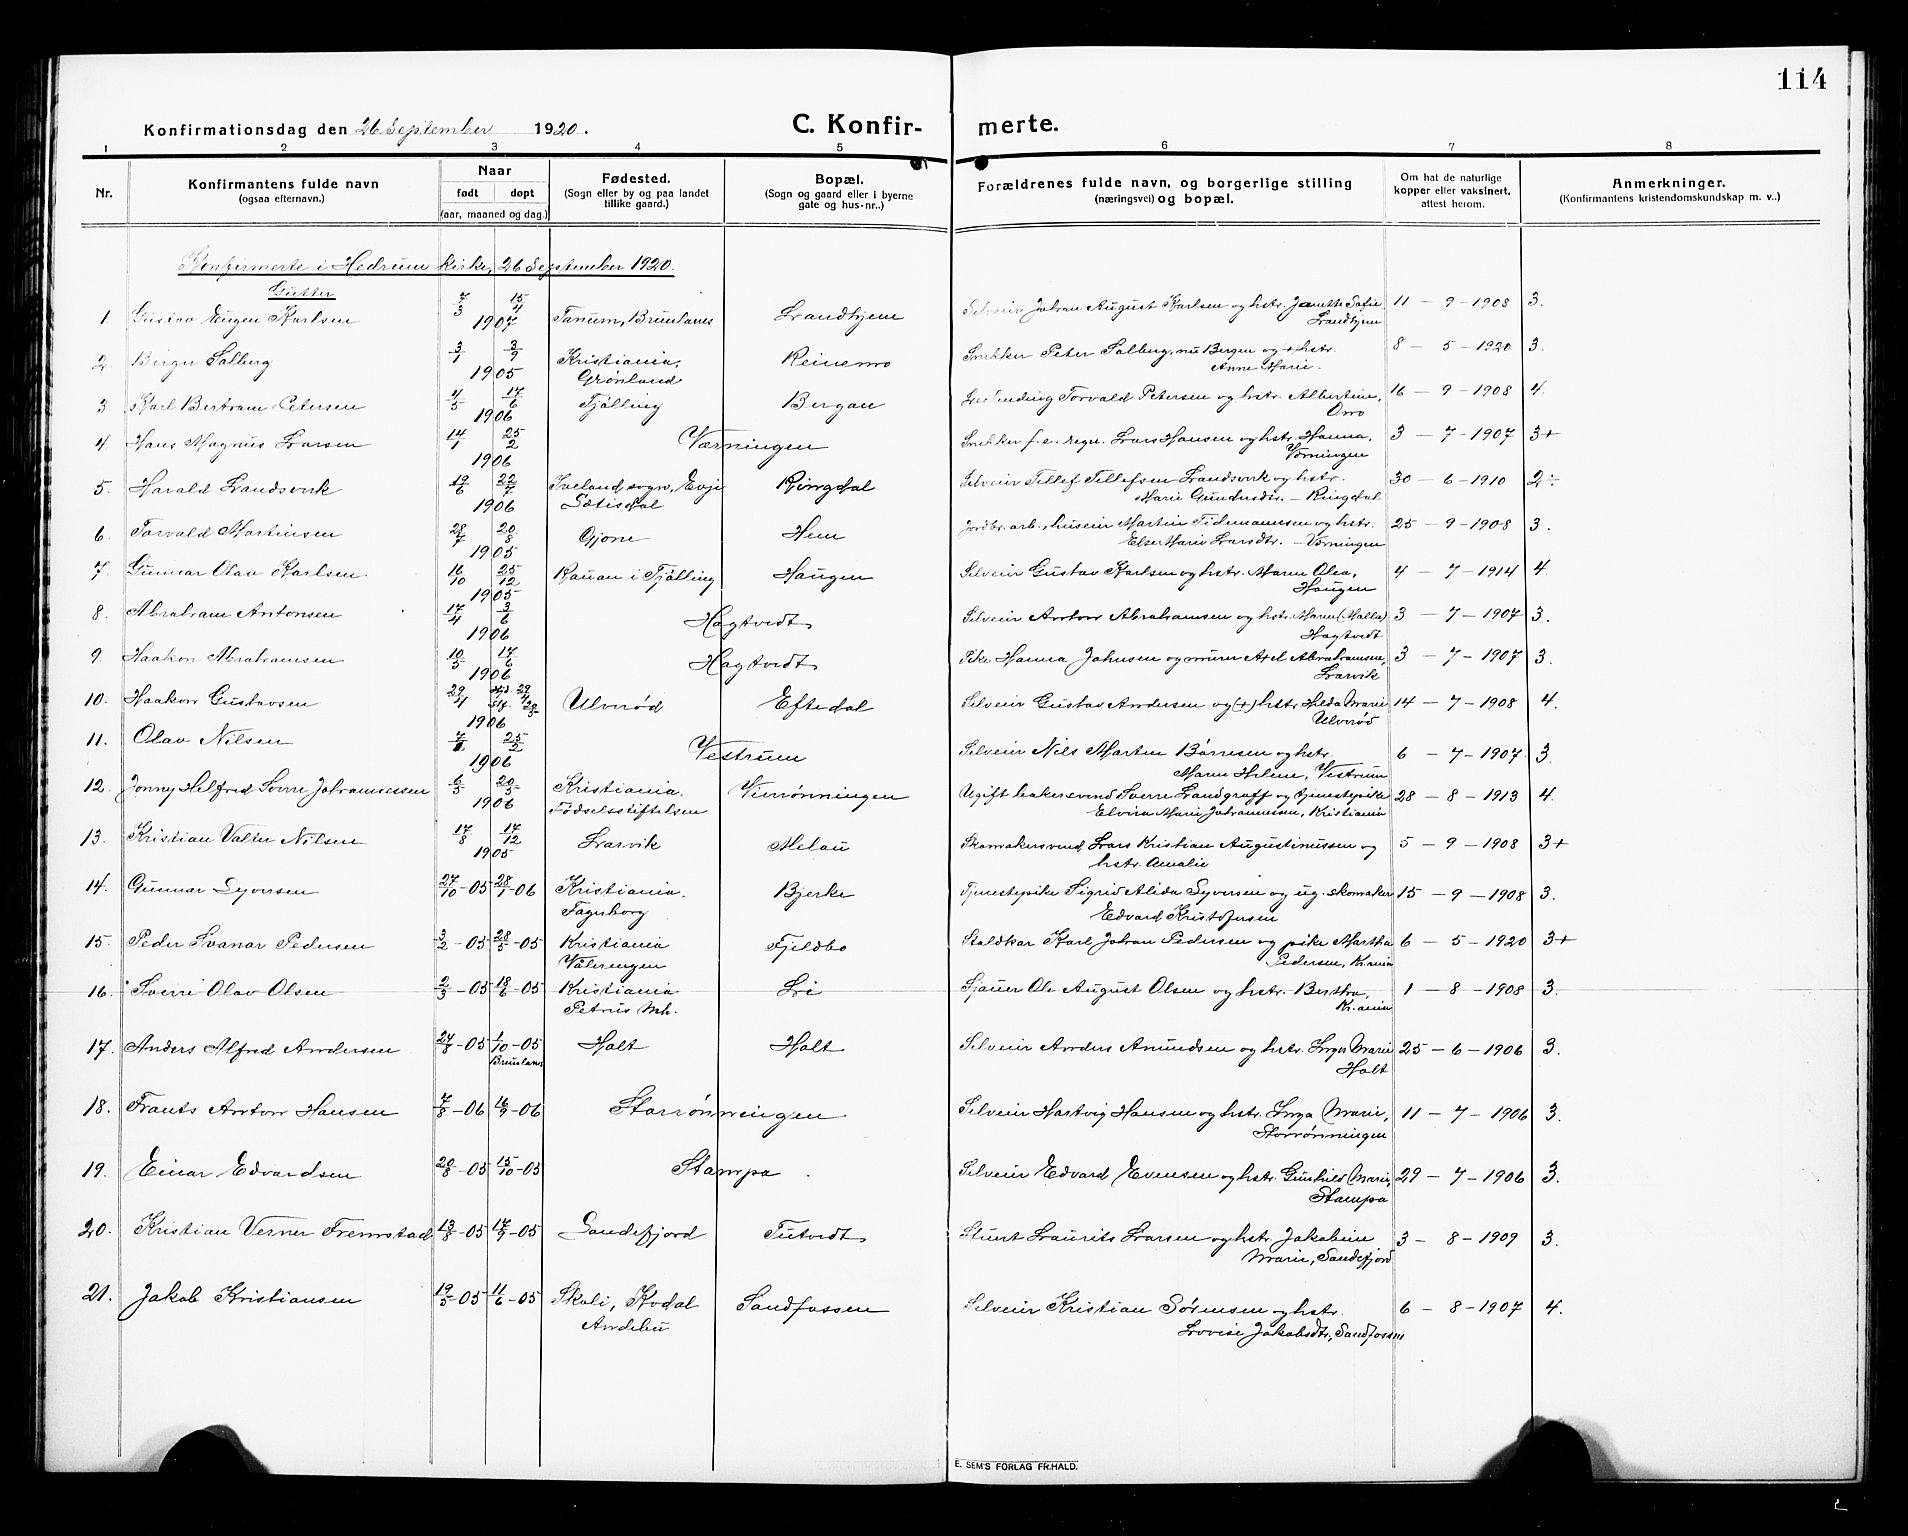 114
Konfirmationsdag den 26 September 1920.
C. Konfir- merte.
1 2 3 4 5 6 7 8
Nr.
Konfirmantens fulde navn
(ogsaa efternavn.)
Naar
født døpt
(aar, maaned og dag.)
Fødested.
(Sogn eller by og paa landet
tillike gaard.)
Bopæl.
(Sogn og gaard eller i byerne
gate og hus-nr..)
Forældrenes fulde navn, og borgerlige stilling
(næringsvei) og bopæl.
Om hat de naturlige
kopper eller vaksinert,
attest herom.
Anmerkninger.
(Konfirmantens kristendomskundskap m. v..)
Konfirmerte i Hedrum kirke, 26 September 1920.
Gutter
1. Gustav Eugen Karlsen 7/3 15/4 1907 Tanum, Brunlanes Lrandhjem Selveier Johan August Karlsen og hstr. Janette Sofie 11 - 9 - 1908 3.
2. Birger Solberg 3/1 3/9 1905 Kristiania, Grønland Reinemo Snekker Peter Solberg, nu Bergen og (+) hstr. Anne Marie. 8 - 5 - 1920 3.
3 Karl Bertram Petersen 4/5 17/6 1906 Tjølling Bergan Torvald Petersen og hstr. Albertine, Orro 16 - 9 - 1908 4.
4 Hans Magnus Larsen 14/1 25/2 1906 Værningen Snekker f. e. regn. Lars Hansen og hstr. Hanna, Værningen 3 - 7 - 1907 3+
5. Harald Landsverk 19/6 22/7 1906 Iveland sogn, Evje Sætisdal Ringdal Selveier Tellef Tellefsen Landsverk og hstr. Marie Gundersdtr. - Ringdal 30 - 6 - 1910 2÷
6. Torvald Martinsen 28/7 20/8 1905 Gjone Hem Jordbr. arb., huseier Martin Tidemannsen og hstr. Else Marie Larsdtr. - Værningen 25 - 9 - 1908 3.
7. Gunnar Olav Karlsen 16/10 25/12 1905 Rauan i Tjølling Haugen Selveier Gustav Karlsen og hstr. Maren Olea, Haugen 4 - 7 - 1914 4.
8. Abraham Antonsen 17/4 3/6 1906 Hagtvedt Selveier Anton Abrahamsen og hstr. Maren (Malla) Hagtvedt 3 - 7 - 1907 3.
9. Haakon Abrahamsen 10/5 17/6 1906 Hagtvedt Pike Hanna Johnsen og murer Axel Abrahamsen, Larvik 3 - 7 - 1907 3.
10. Haakon Gustavsen 29/4 29/4 1906 Ulverød Eftedal Selveier Gustav Andersen og (+) hstr. Hilda Marie Ulverød 14 - 7 - 1908 4.
11. Olav Nilsen 25/2 1906 Vestrum Selveier Nils Martin Børresen og hstr. Maren Helene, Vestrum 6 - 7 - 1907 3.
12. Jonny Helfred Sverre Johannessen 6/3 20/5 1906 Kristiania. Fødselsstiftelsen Vierrønningen Ugift bakersvend Sverre Landgraff og tjenestepike Elvira Marie Johannessen, Kristiania 28 - 8 - 1913 4.
13. Kristian Valter Nilsen 17/8 17/12 1905 Larvik Melau Skomakersvend Lars Kristian Augustinussen og hstr. Amalie 5 - 9 - 1908 3+
14. Gunnar Syversen 27/10-05 28/1-06 Kristiania. Fagerborg Bjerke Tjenestepike Sigrid Alida Syversen og ug. skomaker Edvard Kristofersen 15 - 9 - 1908 3.
15. Peder Svanar Pedersen 3/2-05 28/5-05 Kristiania Vålerengen Fjeldbo Staldkar Karl Johan Pedersen og pike Martha Pedersen, Kr.ania 6 - 5 - 1920 3+
16. Sverre Olav Olsen 2/3-05 18/6-05 Kristiania Petrus Mh. Lie Sjauer Ole August Olsen og hstr. Bertha, Kr.ania 1 - 8 - 1908 3.
17. Anders Alfred Andersen 24/8-05 1/10-05 Brunlanes Holt Holt Selveier Anders Amundsen og hstr. Inger Marie Holt 25 - 6 - 1906 3.
18. Frants Anton Hansen 7/8-06 16/9-06 Storrønningen Selveier Hartvig Hansen og hstr. Inga Marie, Storrønningen 11 - 7 - 1906 3.
19. Einar Edvardsen 20/8-05 15/10-05 Stampa Selveier Edvard Evensen og hstr. Gunhild Marie, Stampa 29 - 7 - 1906 3.
20. Kristian Verner Fremstad 13/8-05 17/9-05 Sandefjord Tutvedt Stuert Laurits Larsen og hstr. Jakobine Marie, Sandefjord 3 - 8 - 1909 3.
21. Jakob Kristiansen 19/5-05 11/6-05 Skoli, Kodal Andebu Sandfossen Selveier Kristian Sørensen og hstr. Lovise Jakobsdtr., Sandfossen 6 - 8 - 1907 4.
E. SEM'S FORLAG FR.HALD.